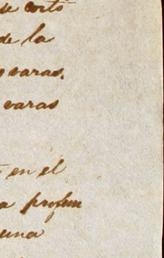 se corto
de la
varas.
varas
en el
a profun
una